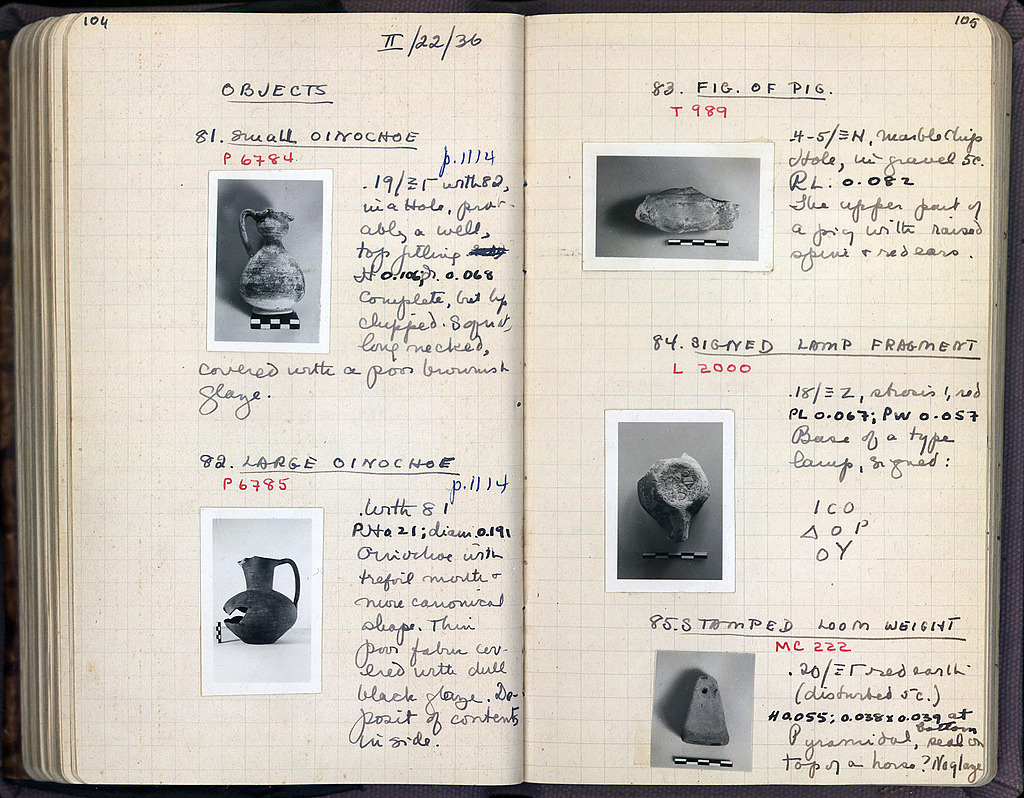 104
II/22/36
OBJECTS
81. Small OINOCHOE
P 6784
p. 1114
.19/ΞΓ with 82,
in a Hole, prob-
ably a well,
top filling
H 0.106; D. 0.068
Complete, but lip
chipped. Squat,
long necked,
covered with a poor brownish
glaze.
82. LARGE OINOCHOE
P 6785
p. 1114
.With 81
PH 0.21; diam. 0.191
Oinochoe with
trefoil mouth &
more canonical
shape. Thin
poor fabric cov-
ered with dull
black glaze. De-
posit of contents
inside.
105
83. FIG. OF PIG.
T 989
.4-5/ΞΗ, marble chip
Hole, in gravel 5c.
P.L: 0.082
The upper part of
a pig with raised
spine & red ears.
84. SIGNED LAMP FRAGMENT
L 2000
.18/ΞΖ, strosis 1, red
PL 0.067; PW 0.057
Base of a type
lamp, signed:
ICO
ΔOP
OY
85. STAMPED LOOM WEIGHT
MC 222
.20/ΞΓ red earth
(disturbed 5c.)
H 0.055; 0.038 x 0.039 at
bottom
Pyramidal, seal on
top of a horse? No glaze